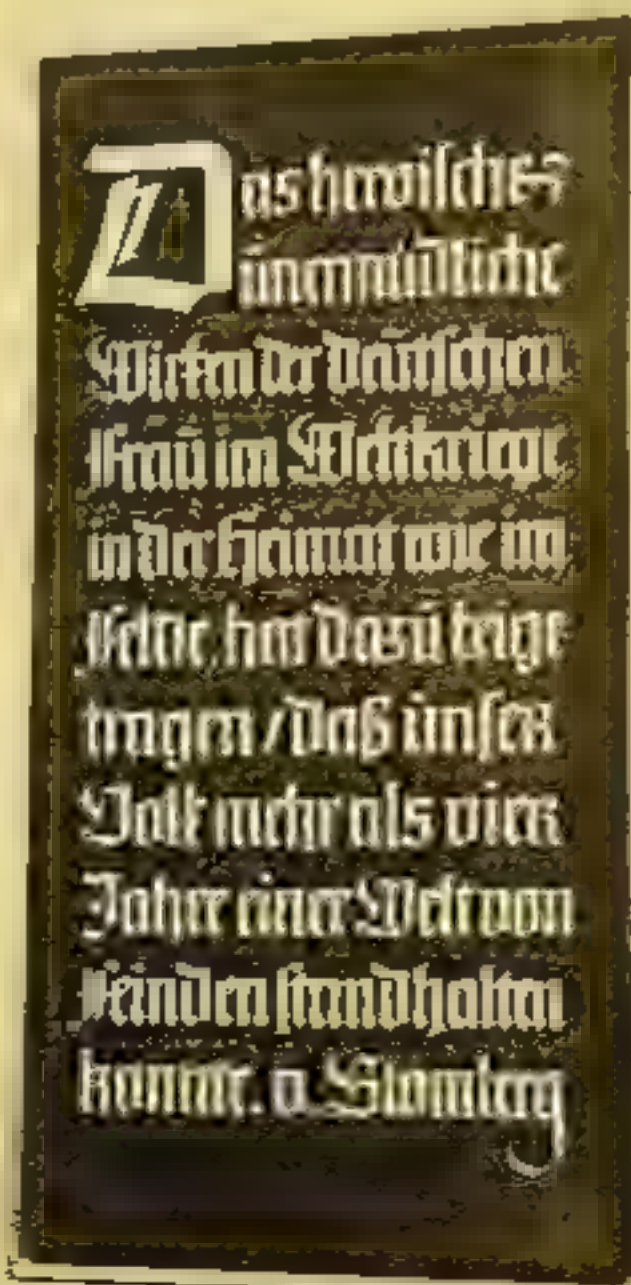 Das heroische
unermüdliche
Wirken der deutschen
Frau im Weltkriege
in der Heimat wie im
Felde, hat dazu beige
tragen / daß unser
Volk mehr als vier
Jahre einer Welt von
Feinden standhalten
konnte. v. Blomberg